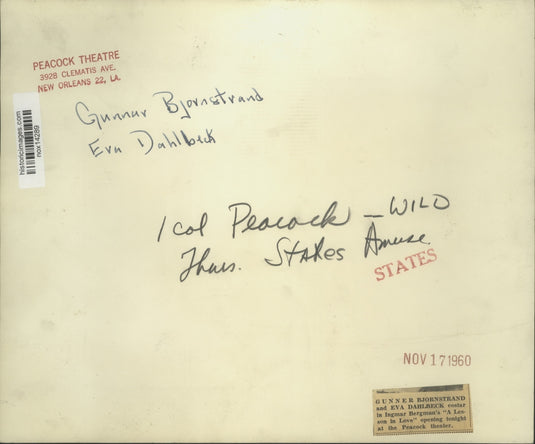 PEACOCK THEATRE
3928 CLEMATIS AVE.
NEW ORLEANS 22, LA.
historicimages.com
nox14289
Gunnar Bjornstrand
Eva Dahlbeck
1 col Peacock — WILD
Thurs. States Amuse.
STATES
NOV 17 1960
GUNNER BJORNSTRAND
and EVA DAHLBECK costar
in Ingmar Bergman's "A Les-
son in Love" opening tonight
at the Peacock theater.